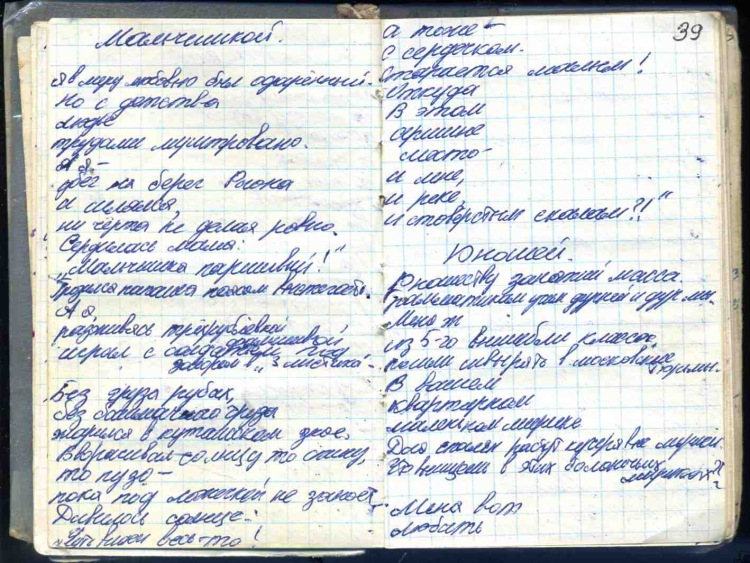 Мальчишкой.
Я в меру любовью был одарённый.
Но с детства
людьё
трудами муштровано.
А я —
убёг на берег Риона
и шлялся,
ни чёрта не делая ровно.
Сердилась мама:
„Мальчишка паршивый!"
Грозился папаша поясом выстегать.
А я,
разживясь трёхрублёвкой
фальшивой
играл с солдатнёй под
забором в „3 листика".
Без груза рубах,
без башмачного груза
жарился в кутаисском зное.
Вворачивал солнцу то спину,
то пузо —
пока под ложечкой не заноет
Дивилось солнце:
„Чуть виден весь-то!
39
а тоже —
с сердечком.
Старается малым!
Откуда
В этом
аршине
место —
и мне,
и реке,
и стовёрстым скалам?!"
Юношей.
Юношеству занятий масса.
Грамматикам учим дурней и дур мы.
Меня ж
из 5-го вышибли класса
пошли швырять в московские
тюрьмы.
В вашем
квартирном
маленьком мирике
Для спален растут кучерявые лирики.
Что выищешь в этих болоночьих
лириках?
Меня вот
любить